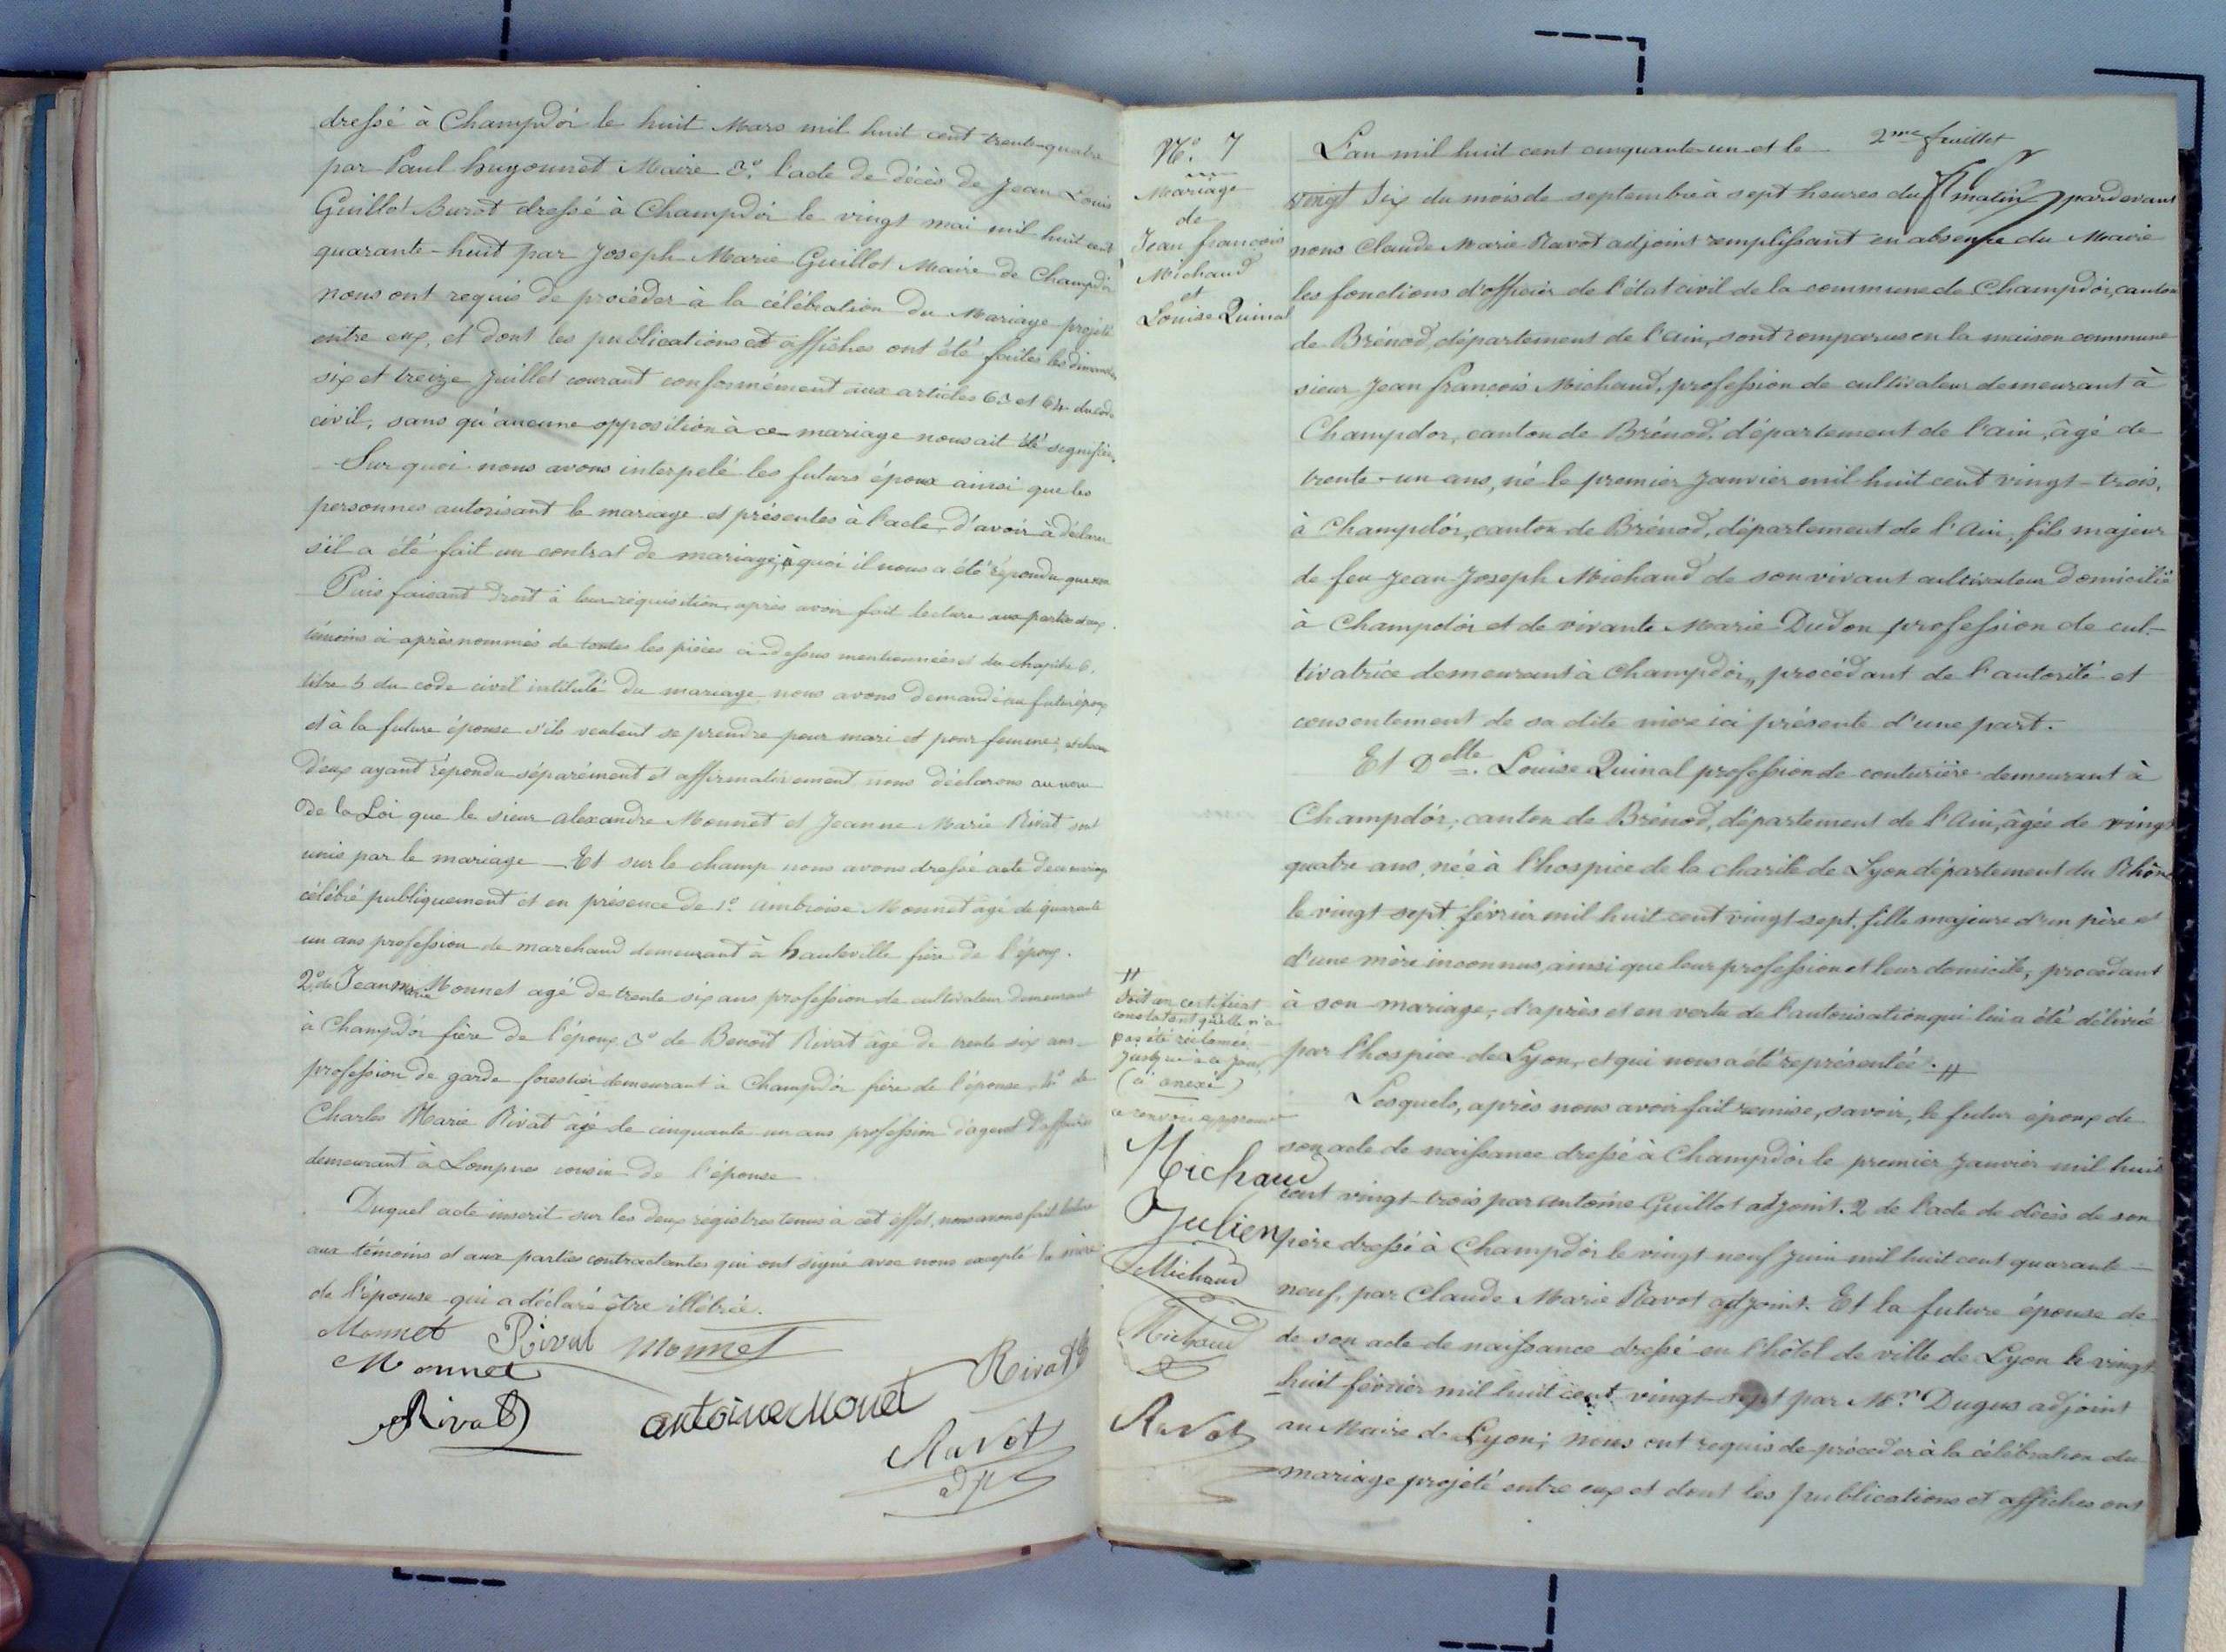 dressé à Champdôr le huit Mars mil huit cent trente-quatre
par Paul hugonnet Maire 3º l'acte de décès de Jean Louis
Guillot Burot dressé à Champdôr le vingt mai mil huit cent
quarante-huit par Joseph Marie Guillot Maire de Champdôr
nous ont requis de procéder à la célébration du Mariage projeté
entre eux, et dont les publications et affiches ont été faites les dimanches
six et treize Juillet courant conformément aux articles 63 et 64 du code
civil, sans qu'aucune opposition à ce mariage nous ait été signifiée.
Sur quoi nous avons interpelé les futurs époux ainsi que les
personnes autorisant le mariage et présentes à l'acte d'avoir à déclarer
s'il a été fait un contrat de mariage, à quoi il nous a été répondu que non
Puis faisant droit à leur réquisition, après avoir fait lecture aux parties et aux
témoins ci-après nommés de toutes les pièces ci-dessus mentionnées et du chapitre 6.
titre 5 du code civil intitulé du mariage nous avons demandé au futur époux
et à la future épouse s'ils veulent se prendre pour mari et pour femme; et chacun
d'eux ayant répondu séparément et affirmativement nous déclarons au nom
de la Loi que le sieur alexandre Monnet et Jeanne Marie Rivat sont
unis par le mariage _ Et sur le champ nous avons dressé acte de ce mariage
célébré publiquement et en présence de 1º ambroise Monnet agé de quarante
un ans profession de marchand demeurant à hauteville frère de l'époux.
2º de Jean Marie Monnet agé de trente six ans profession de cultivateur demeurant
à Champdôr frère de l'époux 3º de Benoit Rivat âgé de trente six ans
profession de garde forestier demeurant à Champdôr frère de l'épouse, 4º de
Charles Marie Rivat âgé de cinquante un ans profession d'agent d'affaires
demeurant à Lompnes cousin de l'épouse
Duquel acte inscrit sur les deux régistres tenus à cet effet, nous avons fait lecture
aux témoins et aux parties contractantes qui ont signé avec nous excepté la mère
de l'épouse qui a déclaré être illétrée.
Monnet Rivat Monnet
Monnet Rivat
Rivat antoine Monet
Ravot
adj
Nº. 7
Mariage
de
Jean françois
Michaud
et
Louise Quinal
2me feuillet
L'an mil huit cent cinquante-un et le
vingt Six du mois de septembre à sept heures du matin pardevant
nous Claude Marie Ravot adjoint remplissant en absence du Maire
les fonctions d'officier de l'état civil de la commune de Champdôr, canton
de Brénod, département de l'ain, sont comparus en la maison commune
sieur Jean françois Michaud, profession de cultivateur demeurant à
Champdor, canton de Brénod, département de l'ain, âgé de
trente-un ans, né le premier Janvier mil huit cent vingt-trois,
à Champdôr, canton de Brénod, département de l'Ain, fils majeur
de feu Jean-Joseph Michaud de son vivant cultivateur domicilié
à Champdôr et de vivante Marie Dudon profession de cul-
tivatrice demeurant à Champdôr, procédant de l'autorité et
consentement de sa dite mère ici présente d'une part.
Et Delle. Louise Quinal profession de couturière demeurant à
Champdôr, canton de Brénod, département de l'Ain, âgée de vingt
quatre ans, née à l'hospice de la charité de Lyon département du Rhône
le vingt sept février mil huit cent vingt sept, fille majeure d'un père et
d'une mère inconnus, ainsi que leur profession et leur domicile, procédant
à son mariage, d'après et en vertu de l'autorisation qui lui a été délivrée
par l'hospice de Lyon, et qui nous a été représentée. #
#
Soit un certificat
constatant qu'elle n'a
pas été réclamée
jusqu'à ce jour
(ci anexé)
ce renvoi approuvé
Michaud
Julien
Michaud
Michaud
Ravot
Lesquels, après nous avoir fait remise, savoir, le futur époux de
son acte de naissance dressé à Champdôr le premier Janvier mil huit
cent vingt-trois par antoine Guillot adjoint. 2 de l'acte de décès de son
père dressé à Champdôr le vingt neuf Juin mil huit cent quarante-
neuf, par Claude Marie Ravot adjoint. Et la future épouse de
de son acte de naissance dressé en l'hôtel de ville de Lyon le vingt
huit février mil huit cent vingt-sept par Mr. Dugus adjoint
au Maire de Lyon; nous ont requis de procéder à la célébration du
mariage projeté entre eux et dont les publications et affiches ont